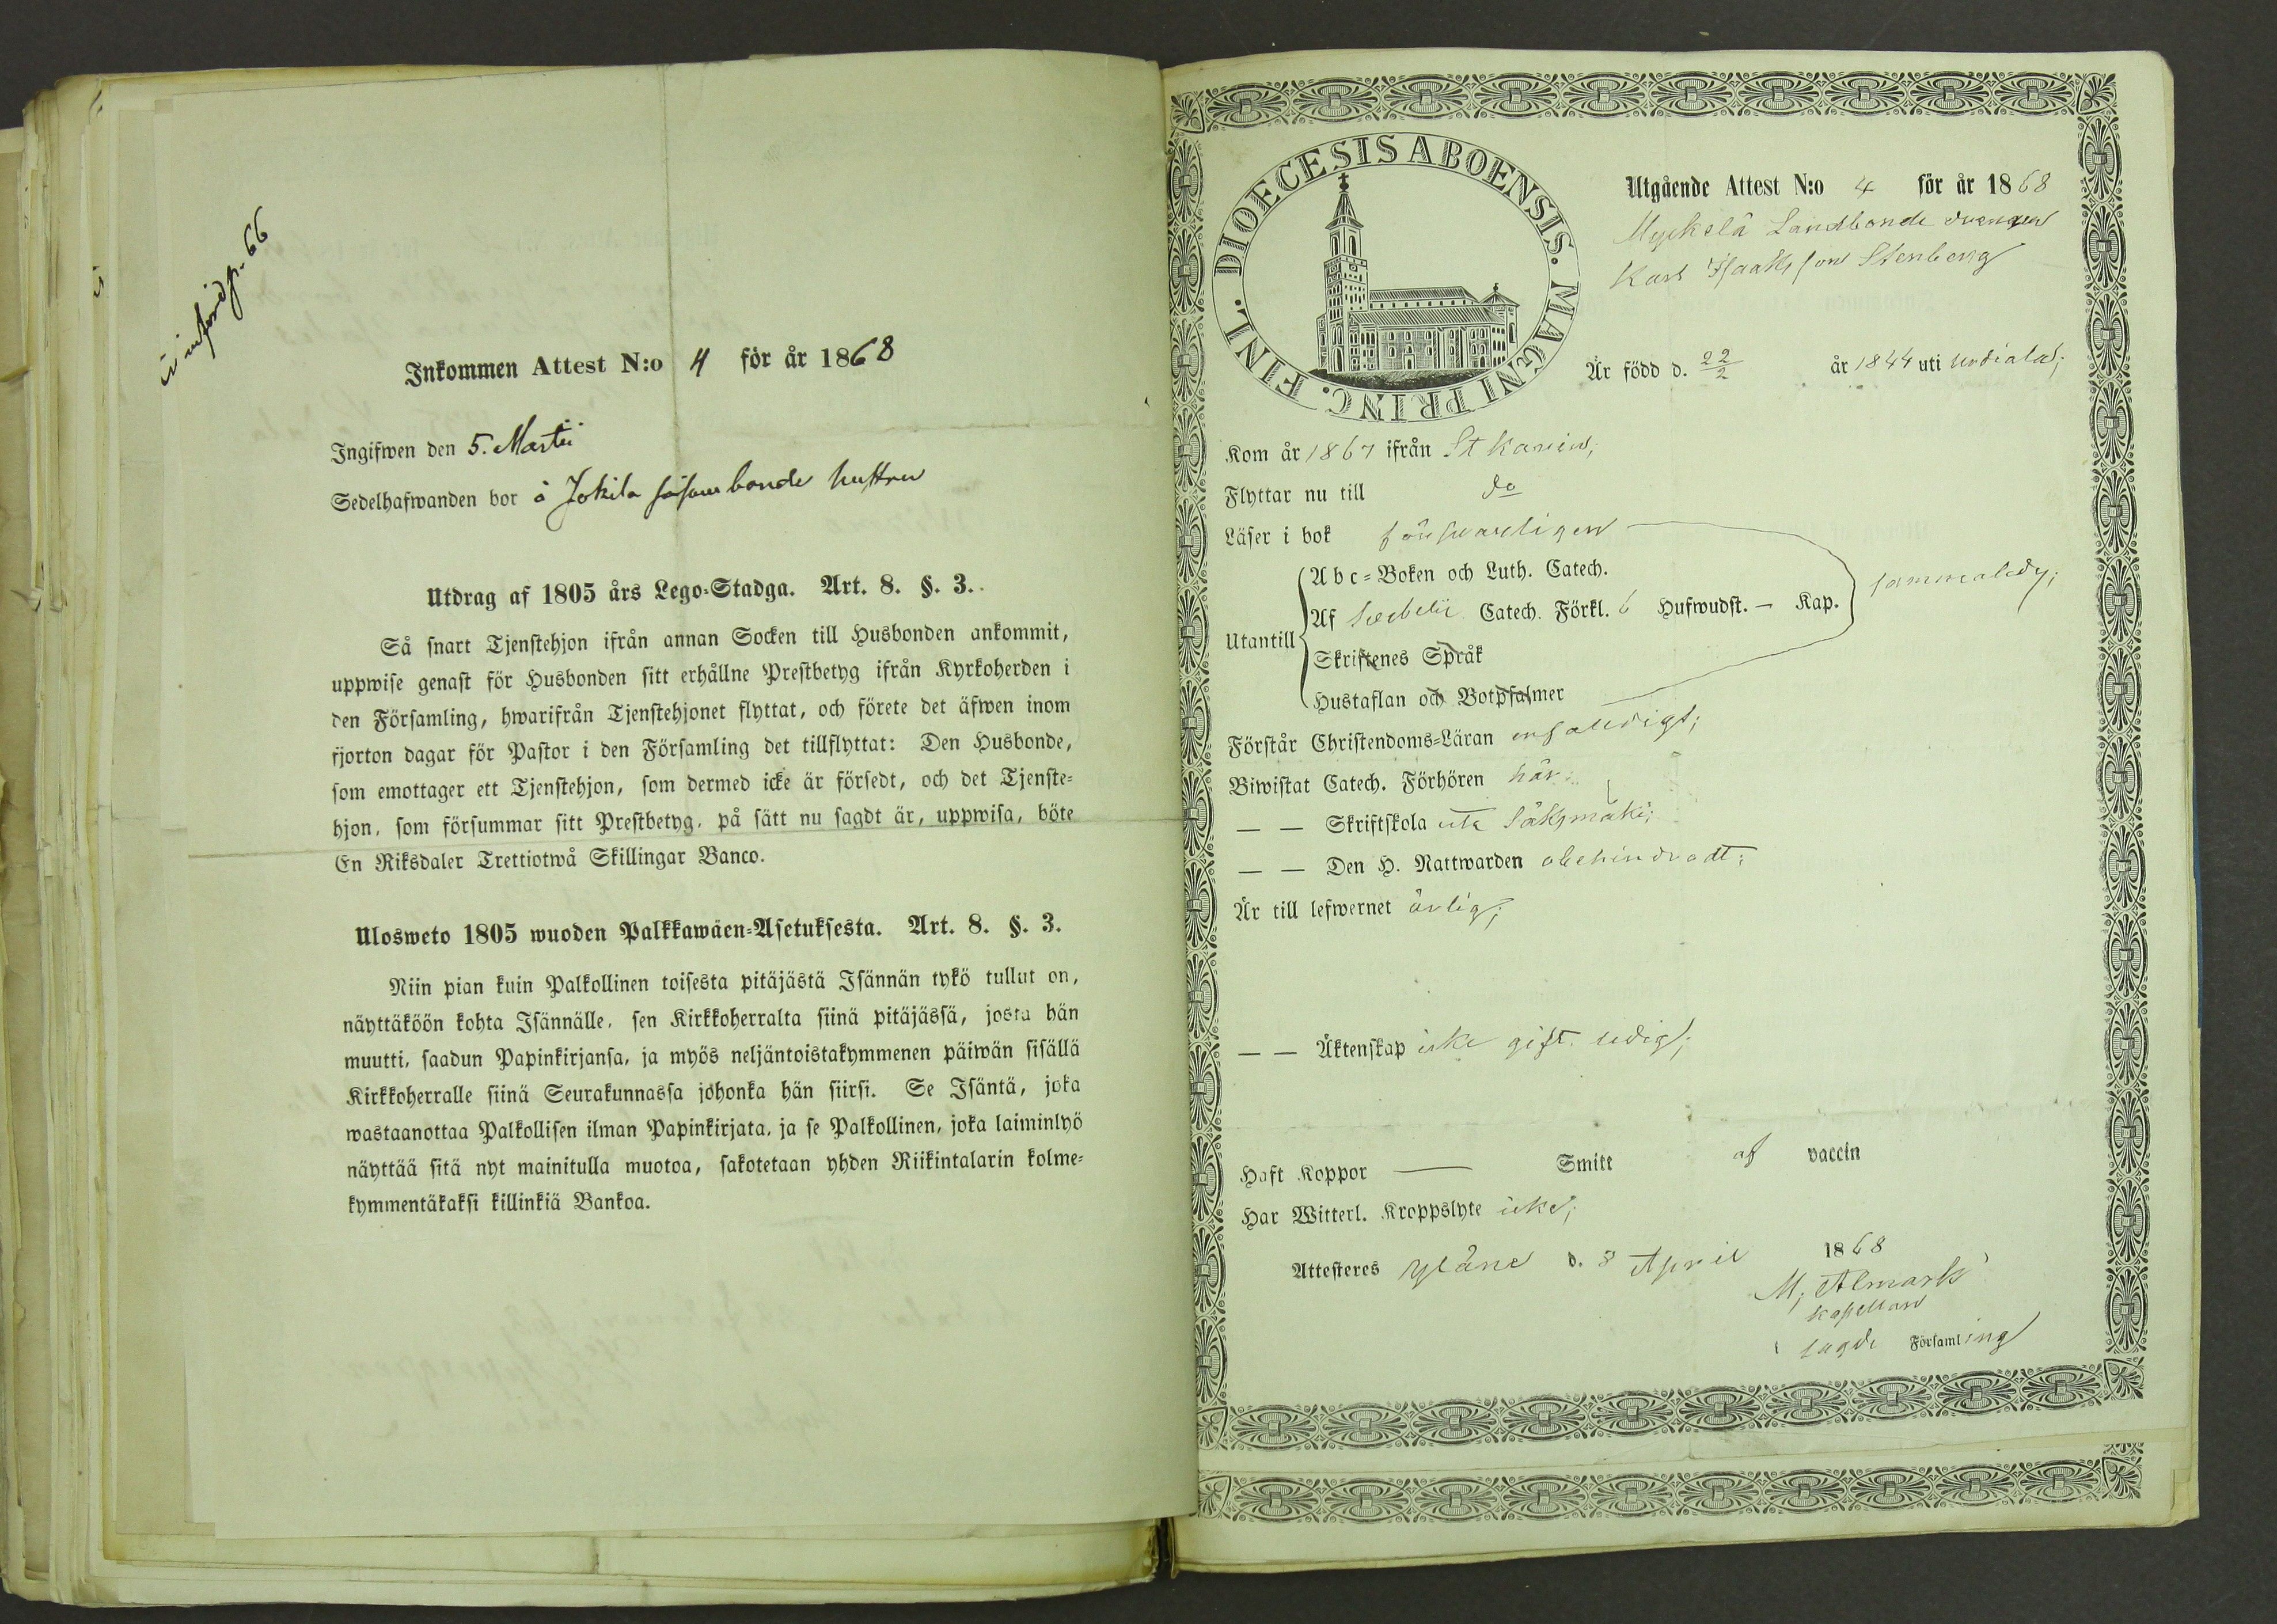 Inkommen Attest N:o 4 för år 1868
Ingifwen den 5. Martii
Sedelhafwanden bor å Jokila bonde hustrun
Utdrag af 1805 års Lego-Stadga. Art. 8. §. 3.
Så snart Tjenstehjon ifrån annan Socken till Husbonden ankommit,
uppwise genast för Husbonden sitt erhållne Prestbetyg ifrån Kyrkoherden i
den Församling, hwarifrån Tjenstehjonet flyttat, och förete det äfwen inom
fjorton dagar för Pastor i den Församling det tillflyttat: Den Husbonde,
som emottager ett Tjenstehjon, som dermed icke är försedt, och det Tjenste-
hjon, som försummar sitt Prestbetyg, på sätt nu sagdt är, uppwisa, böte
En Riksdaler Trettiotwå Skillingar Banco.
Ulosweto 1805 wuoden Palkkawäen-Asetuksesta. Art. 8. §. 3.
Niin pian kuin Palkollinen toisesta pitäjästä Isännän tykö tullut on,
näyttäköön kohta Isännälle, sen Kirkkoherralta siinä pitäjässä, josta hän
muutti, saadun Papinkirjansa, ja myös neljäntoistakymmenen päiwän sisällä
Kirkkoherralle siinä Seurakunnassa johonka hän siirsi. Se Isäntä, joka
wastaanottaa Palkollisen ilman Papinkirjata, ja se Palkollinen, joka laiminlyö
näyttää sitä nyt mainitulla muotoa, sakotetaan yhden Riikintalarin kolme-
kymmentäkaksi killinkiä Bankoa.
DIOECESIS ABOENSIS. MAGNI PRINC. FINL.
Utgående Attest N:o 4 för år 1868
Myckelä Landbonde drengen
Karl Isaaksson Stenberg
Är född d. 22/2 år 1844 uti Urdiala;
Kom år 1867 ifrån St Karins,
Flyttar nu till do
Läser i bok försvarligen
Utantill
Abc-Boken och Luth. Catech.
Af Svebelii Catech. Förkl. 6 Hufwudst. — Kap.
Skriftenes Språk
Hustaflan och Botpsalmer
sammaledes;
Förstår Christendoms-Läran enfaldigt;
Biwistat Catech. Förhören här
— — Skriftskola uti Säkymäki;
— — Den H. Nattwarden obehindradt;
Är till lefwernet ärlig;
— — Äktenskap icke gift. ledig;
Haft Koppor — Smitt af vaccin
Har Witterl. Kroppslyte icke;
Attesteres Yläne d. 8 April 1868
M; Almark
kapellan
i sagde Församling